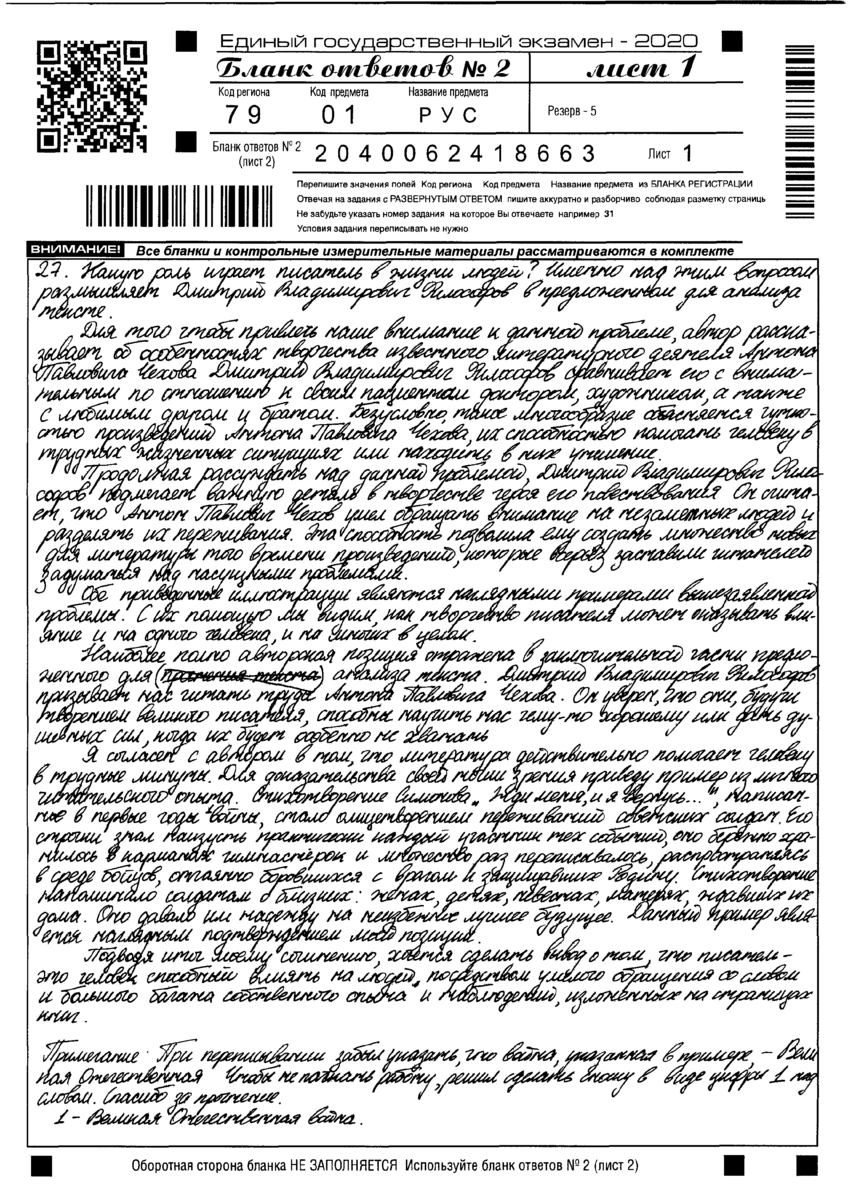 Единый государственный экзамен - 2020
Бланк ответов № 2 лист 1
Код региона Код предмета Название предмета
79 01 РУС Резерв - 5
Бланк ответов № 2 (лист 2) 2040062418663 Лист 1
Перепишите значения полей Код региона Код предмета Название предмета из БЛАНКА РЕГИСТРАЦИИ
Отвечая на задания с РАЗВЕРНУТЫМ ОТВЕТОМ пишите аккуратно и разборчиво соблюдая разметку страниц
Не забудьте указать номер задания на которое Вы отвечаете например 31
Условия задания переписывать не нужно
ВНИМАНИЕ! Все бланки и контрольные измерительные материалы рассматриваются в комплекте
27. Какую роль играет писатель в жизни людей? Именно над этим вопросом
размышляет Дмитрий Владимирович Философов в предложенном для анализа
тексте.
Для того чтобы привлечь наше внимание к данной проблеме, автор расска-
зывает об особенностях творчества известного литературного деятеля Антона
Павловича Чехова Дмитрий Владимирович Философов сравнивает его с внима-
тельным по отношению к своим пациентам доктором, художником, а также
с любимым другом и братом. Безусловно, такое многообразие объясняется чутко-
стью произведений Антона Павловича Чехова, их способностью помогать человеку в
трудных жизненных ситуациях или находить в них утешение.
Продолжая рассуждать над данной проблемой, Дмитрий Владимирович Фило-
софов подмечает важную деталь в творчестве героя его повествования Он счита-
ет, что Антон Павлович Чехов умел обращать внимание на незаметных людей и
разделять их переживания. Эта способность позволила ему создать множество новых
для литературы того времени произведений, которые всерьёз заставили читателей
задуматься над насущными проблемами.
Обе приведенные иллюстрации являются наглядными примерами вышезаявленной
проблемы. С их помощью мы видим, как творчество писателя может оказывать вли-
яние и на одного человека, и на многих в целом.
Наиболее полно авторская позиция отражена в заключительной части предло-
женного для анализа текста. Дмитрий Владимирович Философов
призывает нас читать труды Антона Павловича Чехова. Он уверен, что они, будучи
творением великого писателя, способны научить нас чему-то хорошему или дать ду-
шевных сил, когда их будет особенно не хватать
Я согласен с автором в том, что литература действительно помогает человеку
в трудные минуты. Для доказательства своей точки зрения приведу пример из личного
читательского опыта. Стихотворение Симонова „Жди меня, и я вернусь...“, написан-
ное в первые годы войны, стало олицетворением переживаний советских солдат. Его
строки знал наизусть практически каждый участник тех событий, оно бережно хра-
нилось в карманах гимнастёрок и множество раз переписывалось, распространяясь
в среде бойцов, отчаянно боровшихся с врагом и защищавших Родину. Стихотворение
напоминало солдатам о близких: женах, детях, невестах, матерях, ждавших их
дома. Оно давало им надежду на неизбежное лучшее будущее. Данный пример явля-
ется наглядным подтверждением моей позиции.
Подводя итог моему сочинению, хочется сделать вывод о том, что писатель -
это человек способный влиять на людей, посредством умелого обращения со словом
и большого багажа собственного опыта и наблюдений, изложенных на страницах
книг.
Примечание При переписывании забыл указать, что война, указанная в примере, - Вели
кая Отечественная Чтобы не пачкать работу, решил сделать сноску в виде цифры 1 над
словом. Спасибо за прочтение.
1 - Великая Отечественная война.
Оборотная сторона бланка НЕ ЗАПОЛНЯЕТСЯ Используйте бланк ответов № 2 (лист 2)